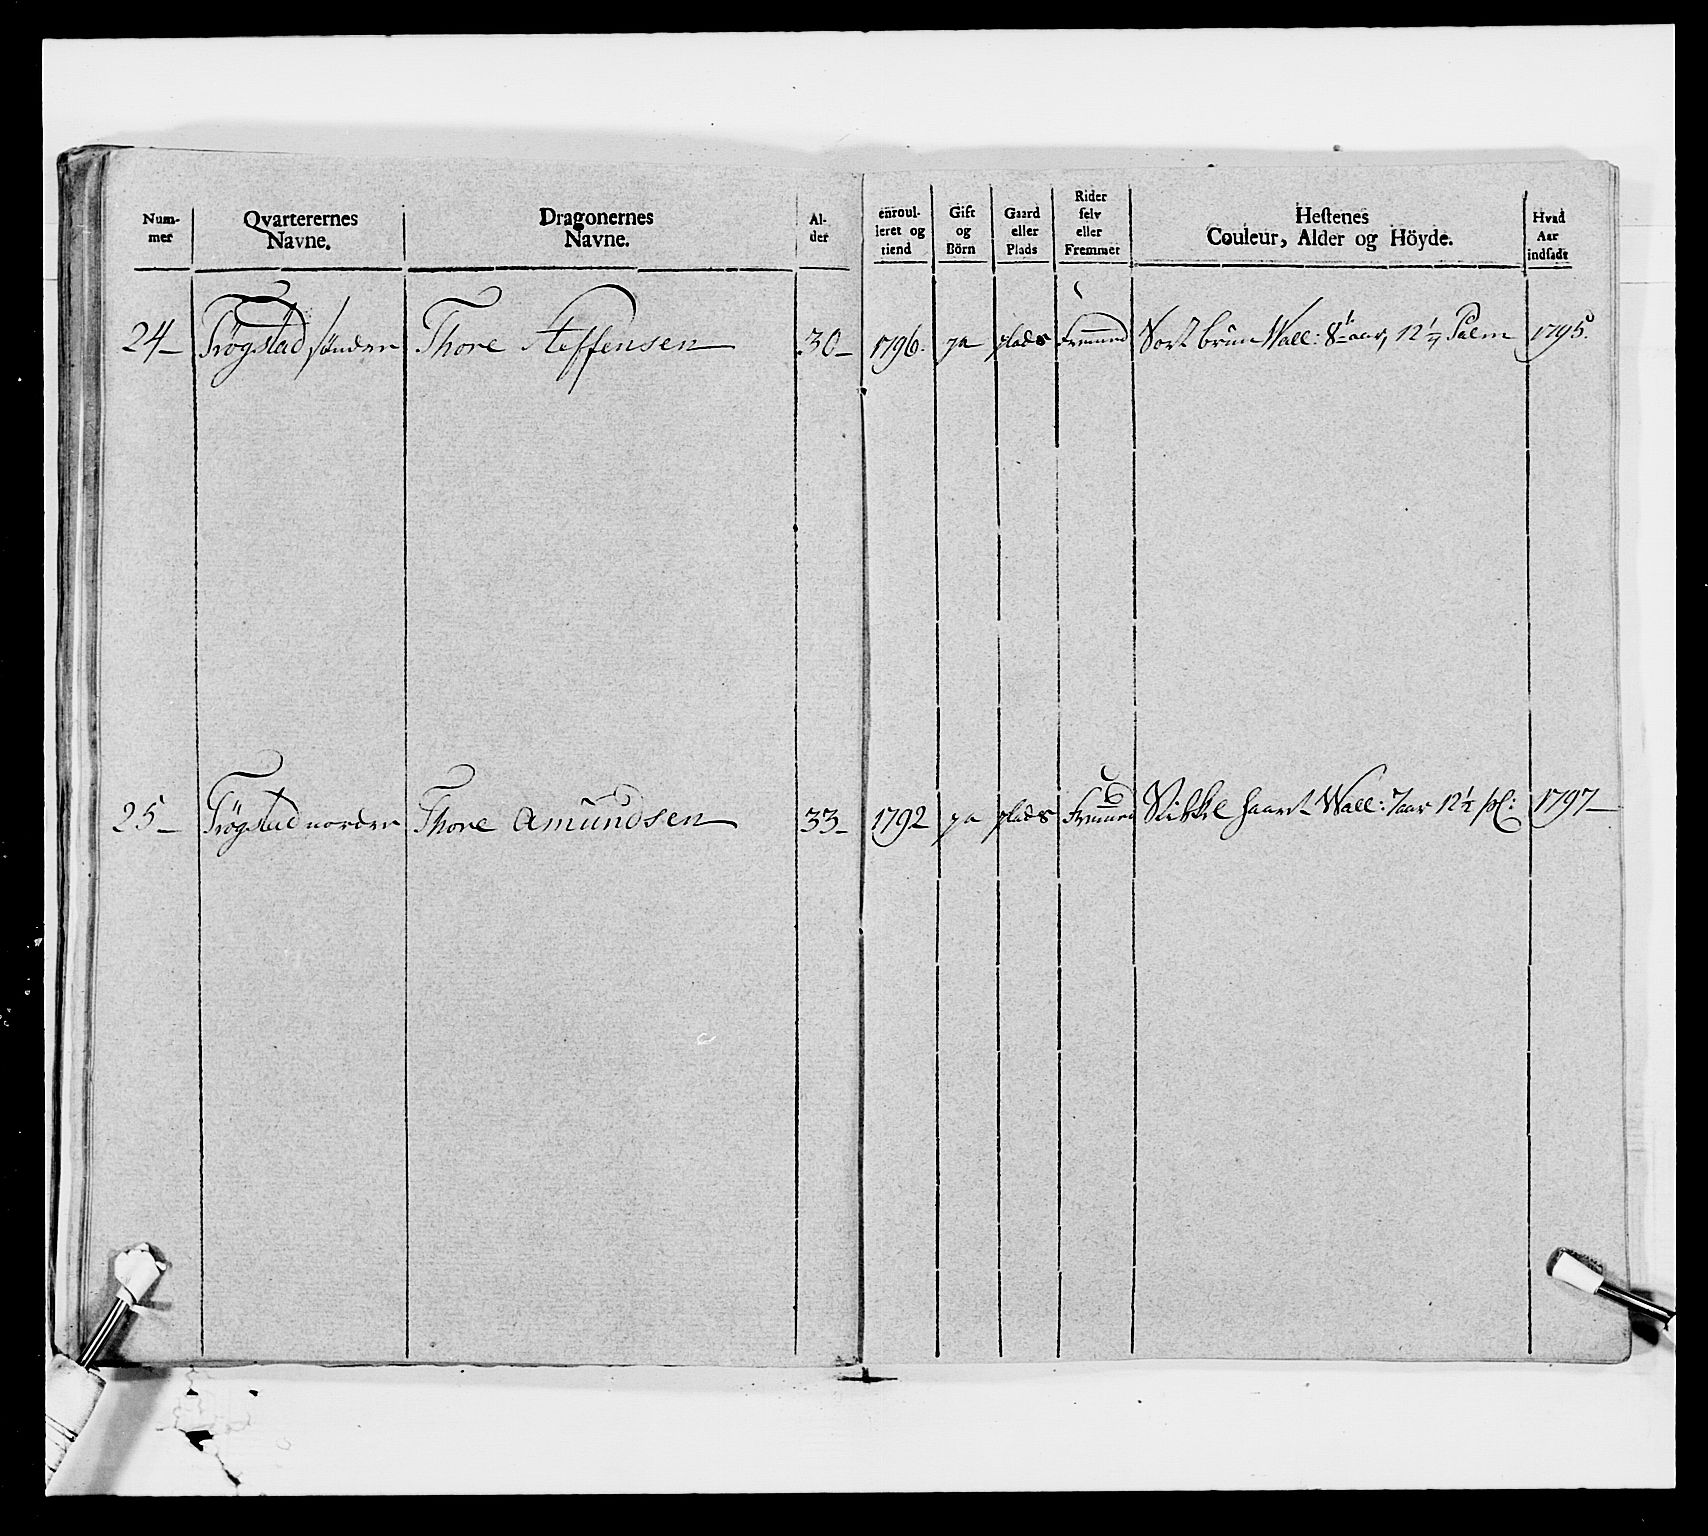 Num-
mer
Qvarterernes
Navne.
Dragonernes
Navne.
Al-
der
enroul-
leret og
tiend
Gift
og
Börn
Gaard
eller
Plads
Rider
selv
eller
Fremmet
Hestenes
Couleur, Alder og Höyde.
Hvad
Aar
indsadt
24 Trögstad sönder Thore Steffensen 30 1796. ja plads Fremmed Sort brun Wall: 8 aar, 12 1/4 Palm 1795.
25 Trögstad norder Thore Amundsen 33 1792 ja plads Fremmed Stikkelhaaret Wall: 7 aar 12 1/2 pl: 1797